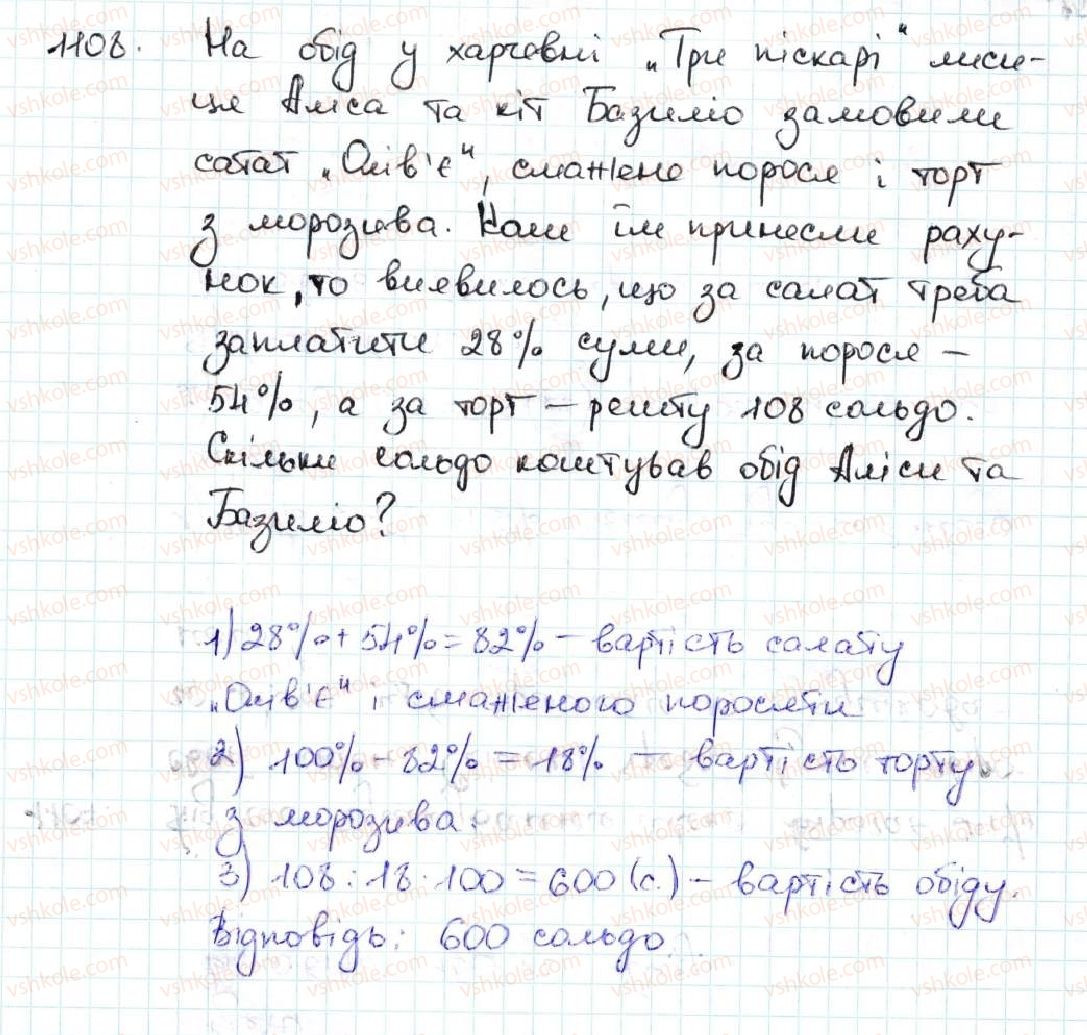 1108. На обід у харчевні „Три піскарі" лиси-
ця Аліса та кіт Базиліо замовили
салат „Олів'є", смажене порося і торт
з морозива. Коли їм принесли раху-
нок, то виявилось, що за салат треба
заплатити 28% суми, за порося –
54%, а за торт – решту 108 сольдо.
Скільки сольдо коштував обід Аліси та
Базиліо?
1) 28% + 54% = 82% – вартість салату
„Олів'є" і смаженого поросяти
2) 100% – 82% = 18% – вартість торту
з морозива.
3) 108 : 18 · 100 = 600 (с.) – вартість обіду.
Відповідь: 600 сольдо.
vshkole.com